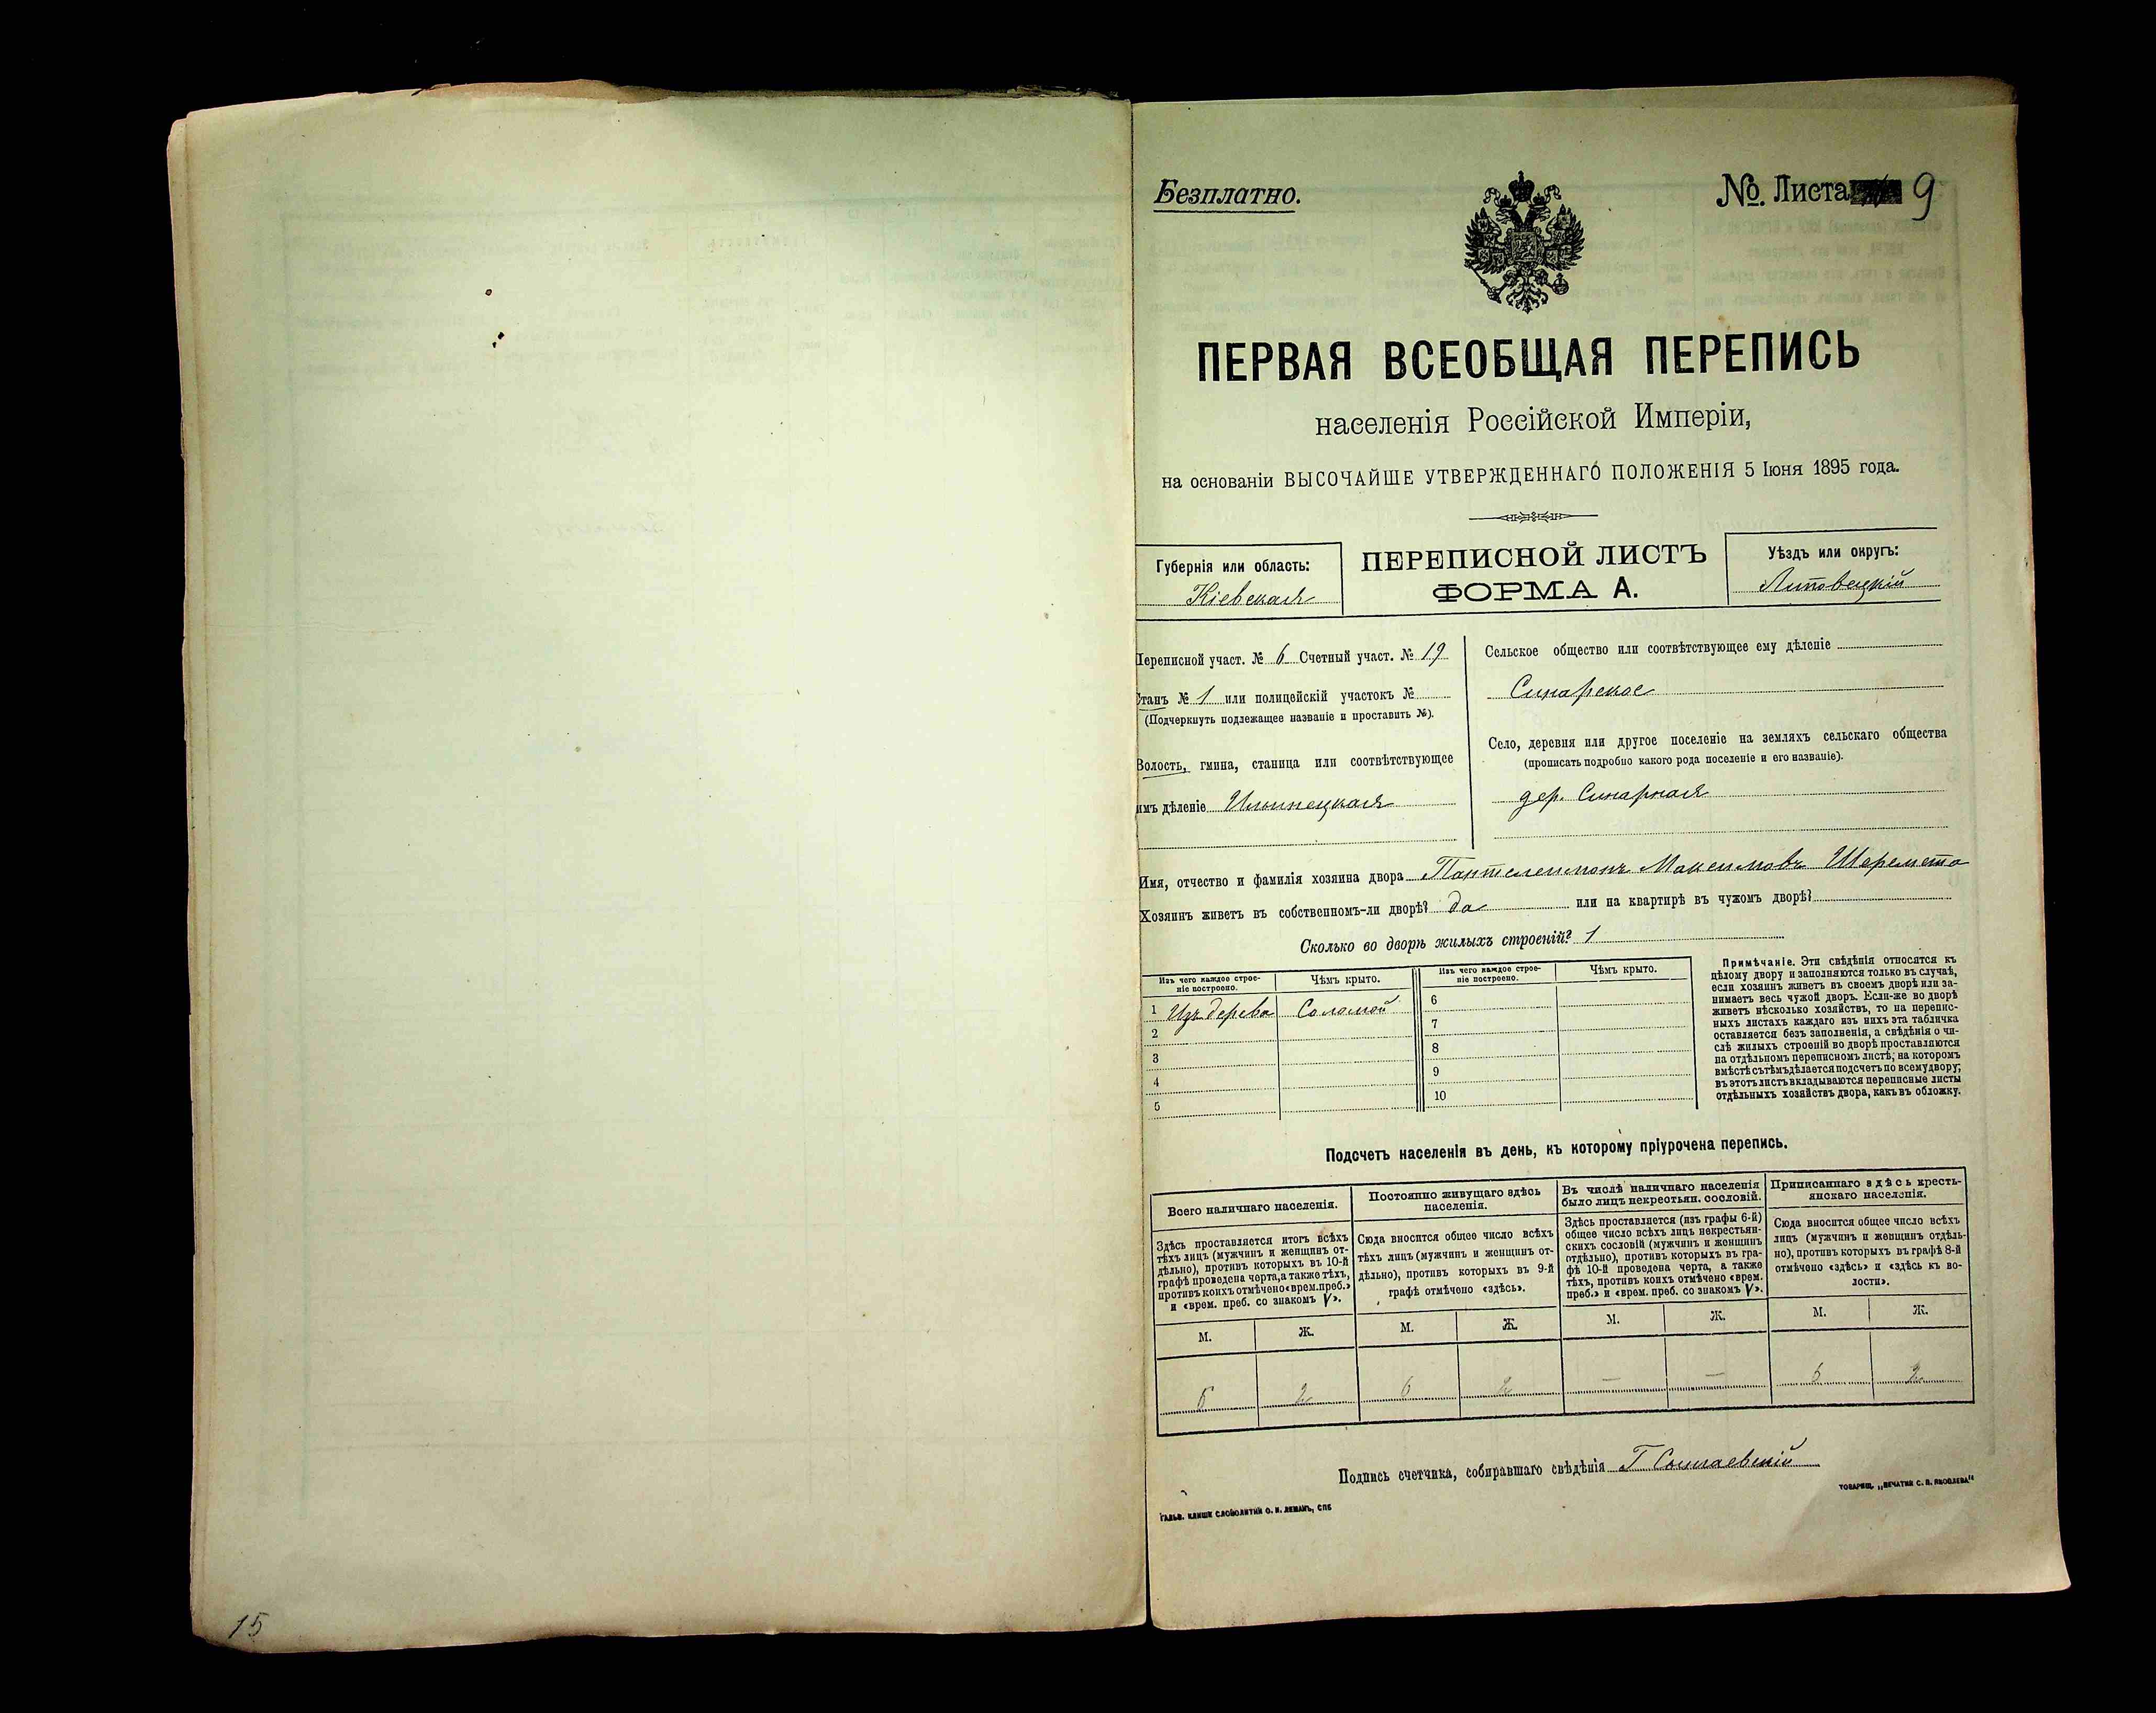 Безплатно.
№. Листа 9
ПЕРВАЯ ВСЕОБЩАЯ ПЕРЕПИСЬ
населенія Россійской Имперіи,
на основаніи ВЫСОЧАЙШЕ УТВЕРЖДЕННАГО ПОЛОЖЕНІЯ 5 Іюня 1895 года.
Губернія или область:
Кіевская
ПЕРЕПИСНОЙ ЛИСТЪ
ФОРМА А.
Уѣздъ или округъ:
Липовецкій
Переписной участ. № 6 Счетный участ. № 19
Станъ № 1 или полицейскій участокъ №
(Подчеркнуть подлежащее названіе и проставить №).
Волость, гмина, станица или соотвѣтствующее
имъ дѣленіе Ильинецкая
Сельское общество или соотвѣтствующее ему дѣленіе
Синарское
Село, деревня или другое поселеніе на земляхъ сельскаго общества
(прописать подробно какого рода поселеніе и его названіе).
дер. Синарная
Имя, отчество и фамилія хозяина двора Пантелеимонъ Максимовъ Шеремета
Хозяинъ живетъ въ собственномъ-ли дворѣ? да или на квартирѣ въ чужомъ дворѣ?
Сколько во дворѣ жилыхъ строеній? 1
Изъ чего каждое строе-
ніе построено.
Чѣмъ крыто.
Изъ чего каждое строе-
ніе построено.
Чѣмъ крыто.
1 Изъ дерева Соломой
2
3
4
5
6
7
8
9
10
Примѣчаніе. Эти свѣдѣнія относятся къ
цѣлому двору и заполняются только въ случаѣ,
если хозяинъ живетъ въ своемъ дворѣ или за-
нимаетъ весь чужой дворъ. Если-же во дворѣ
живетъ нѣсколько хозяйствъ, то на перепис-
ныхъ листахъ каждаго изъ нихъ эта табличка
оставляется безъ заполненія, а свѣдѣнія о чи-
слѣ жилыхъ строеній во дворѣ проставляются
на отдѣльномъ переписномъ листѣ, на которомъ
вмѣстѣ съ тѣмъ дѣлается подсчетъ по всему двору;
въ этотъ листъ вкладываются переписные листы
отдѣльныхъ хозяйствъ двора, какъ въ обложку.
Подсчетъ населенія въ день, къ которому пріурочена перепись.
Всего наличнаго населенія.
Здѣсь проставляется итогъ всѣхъ
тѣхъ лицъ (мужчинъ и женщинъ от-
дѣльно), противъ которыхъ въ 10-й
графѣ проведена черта, а также тѣхъ,
противъ коихъ отмѣчено «врем. преб.»
и «врем. преб. со знакомъ V».
М. Ж.
Постоянно живущаго здѣсь
населенія.
Сюда вносится общее число всѣхъ
тѣхъ лицъ (мужчинъ и женщинъ от-
дѣльно), противъ которыхъ въ 9-й
графѣ отмѣчено «здѣсь».
М. Ж.
Въ числѣ наличнаго населенія
было лицъ некрестьян. сословій.
Здѣсь проставляется (изъ графы 6-й)
общее число всѣхъ лицъ некрестьян-
скихъ сословій (мужчинъ и женщинъ
отдѣльно), противъ которыхъ въ гра-
фѣ 10-й проведена черта, а также
тѣхъ, противъ коихъ отмѣчено «врем.
преб.» и «врем. преб. со знакомъ V».
М. Ж.
Приписаннаго здѣсь кресть-
янскаго населенія.
Сюда вносится общее число всѣхъ
лицъ (мужчинъ и женщинъ отдѣль-
но), противъ которыхъ въ графѣ 8-й
отмѣчено «здѣсь» и «здѣсь къ во-
лости».
М. Ж.
2 6 2 — — 2
Подпись счетчика, собиравшаго свѣдѣнія Г
ГАЛЬВ. КЛИШЕ СЛОВОЛИТНИ О. И. ЛЕМАНЪ, СПБ
ТОВАРИЩ. „ПЕЧАТНЯ С. П. ЯКОВЛЕВА“
15